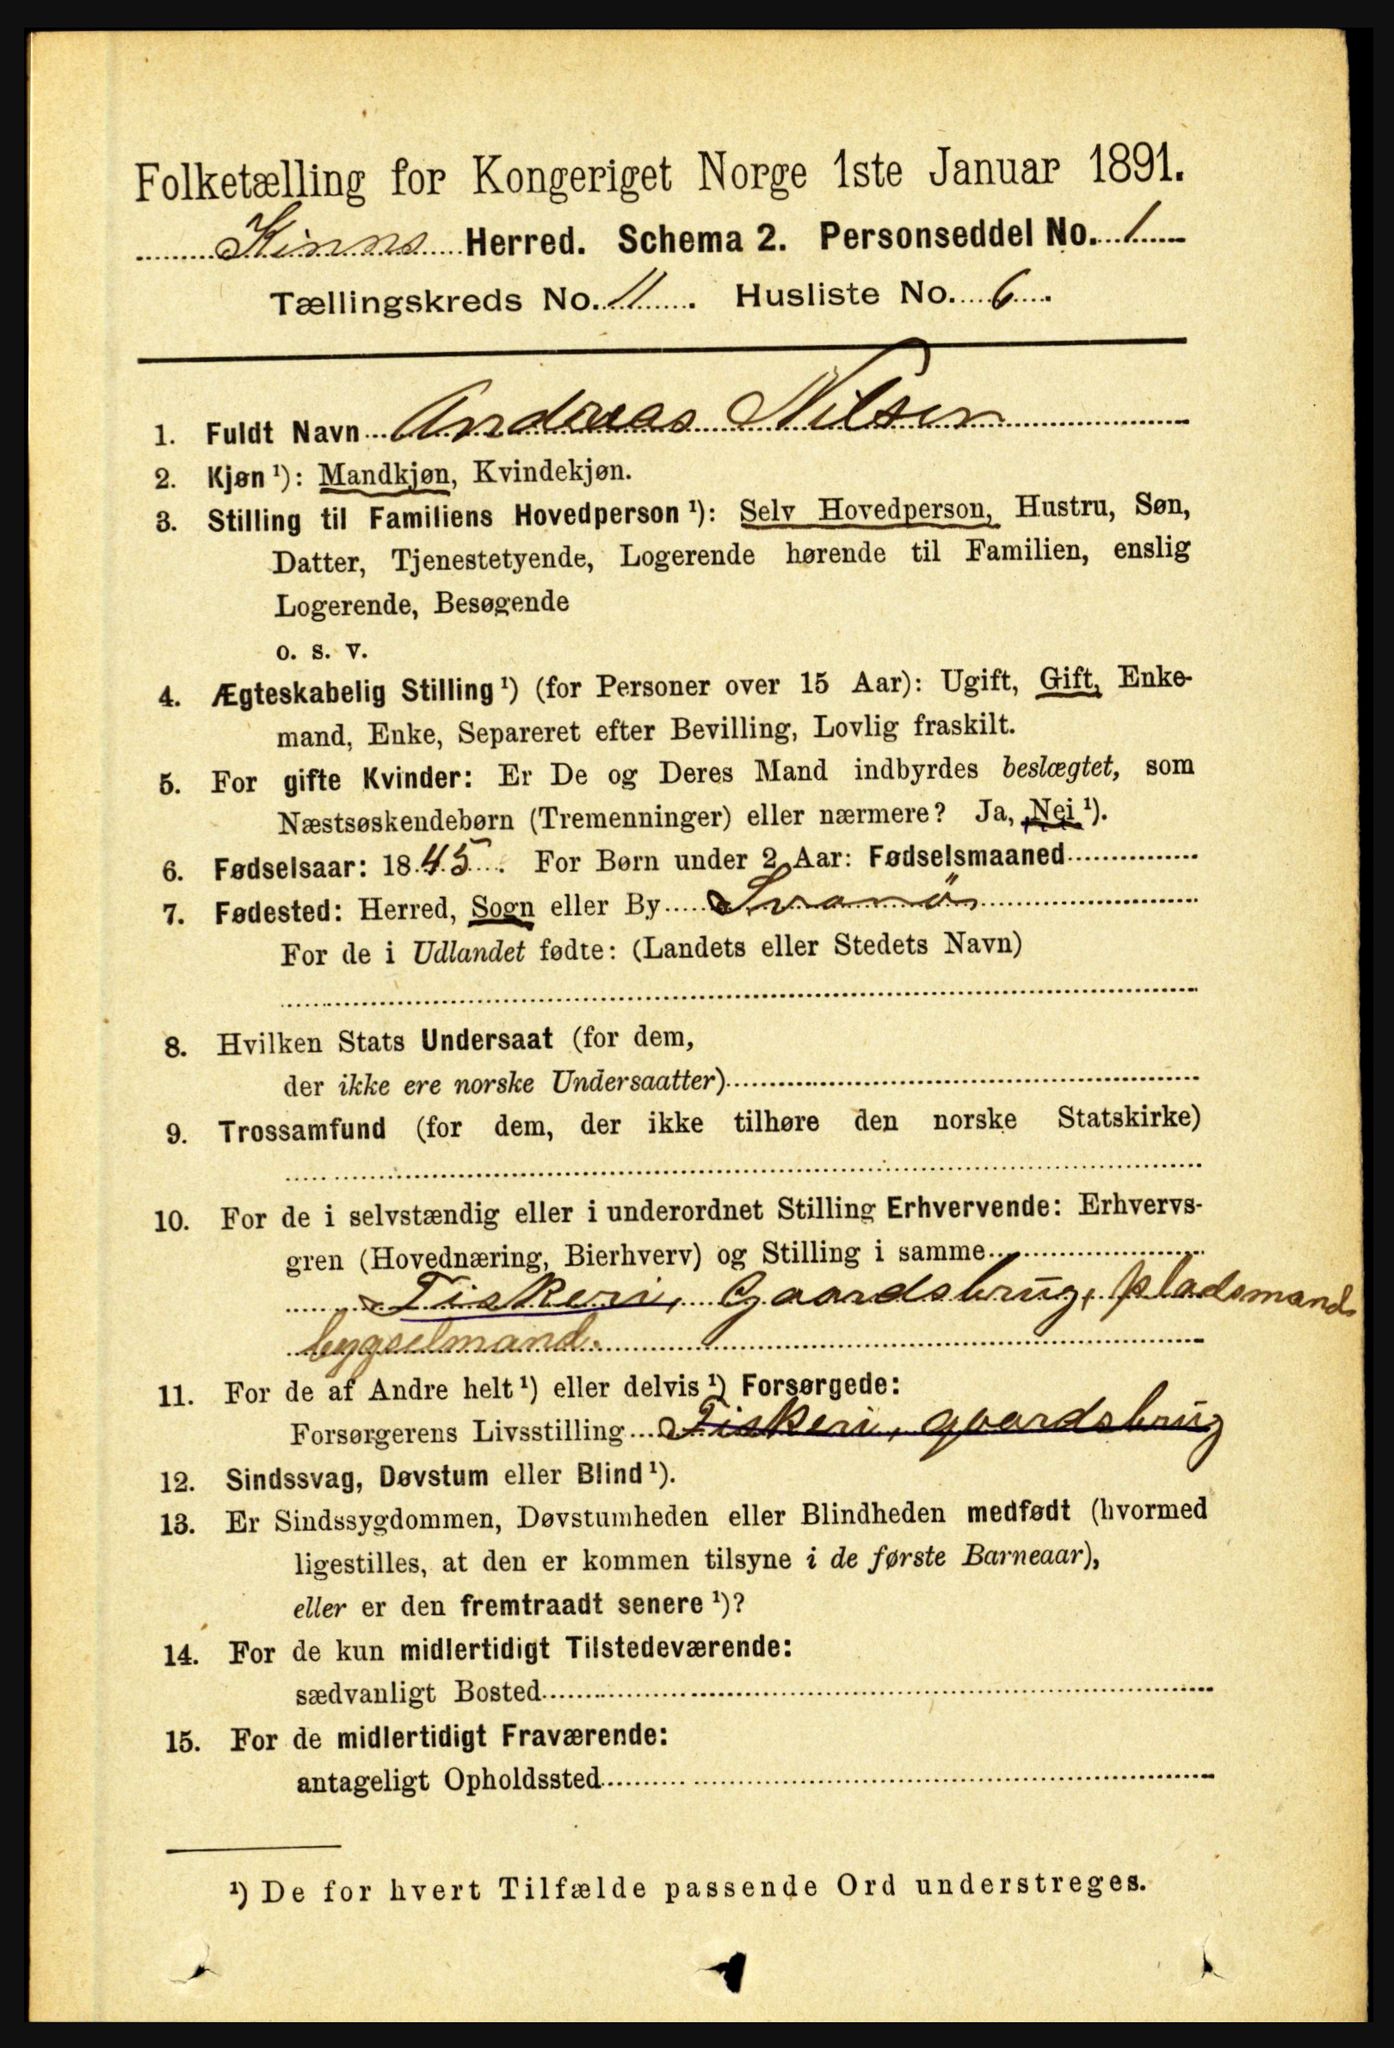 Folketælling for Kongeriget Norge 1ste Januar 1891.
Kinns Herred. Schema 2. Personseddel No. 1
Tællingskreds No. 11. Husliste No. 6.
1. Fuldt Navn Andreas Nilsen
2. Kjøn ¹): Mandkjøn, Kvindekjøn.
3. Stilling til Familiens Hovedperson ¹): Selv Hovedperson, Hustru, Søn,
Datter, Tjenestetyende, Logerende hørende til Familien, enslig
Logerende, Besøgende
o. s. v.
4. Ægteskabelig Stilling ¹) (for Personer over 15 Aar): Ugift, Gift, Enke-
mand, Enke, Separeret efter Bevilling, Lovlig fraskilt.
5. For gifte Kvinder: Er De og Deres Mand indbyrdes beslægtet, som
Næstsøskendebørn (Tremenninger) eller nærmere? Ja, Nei ¹).
6. Fødselsaar: 1845. For Børn under 2 Aar: Fødselsmaaned
7. Fødested: Herred, Sogn eller By Svanö
For de i Udlandet fødte: (Landets eller Stedets Navn)
8. Hvilken Stats Undersaat (for dem,
der ikke ere norske Undersaatter)
9. Trossamfund (for dem, der ikke tilhøre den norske Statskirke)
10. For de i selvstændig eller i underordnet Stilling Erhvervende: Erhvervs-
gren (Hovednæring, Bierhverv) og Stilling i samme
Fiskeri, Gaardsbrug, pladsmand
bygselmand.
11. For de af Andre helt ¹) eller delvis ¹) Forsørgede:
Forsørgerens Livsstilling Fiskeri, gaardsbrug
12. Sindssvag, Døvstum eller Blind ¹).
13. Er Sindssygdommen, Døvstumheden eller Blindheden medfødt (hvormed
ligestilles, at den er kommen tilsyne i de første Barneaar),
eller er den fremtraadt senere ¹)?
14. For de kun midlertidigt Tilstedeværende:
sædvanligt Bosted
15. For de midlertidigt Fraværende:
antageligt Opholdssted
¹) De for hvert Tilfælde passende Ord understreges.